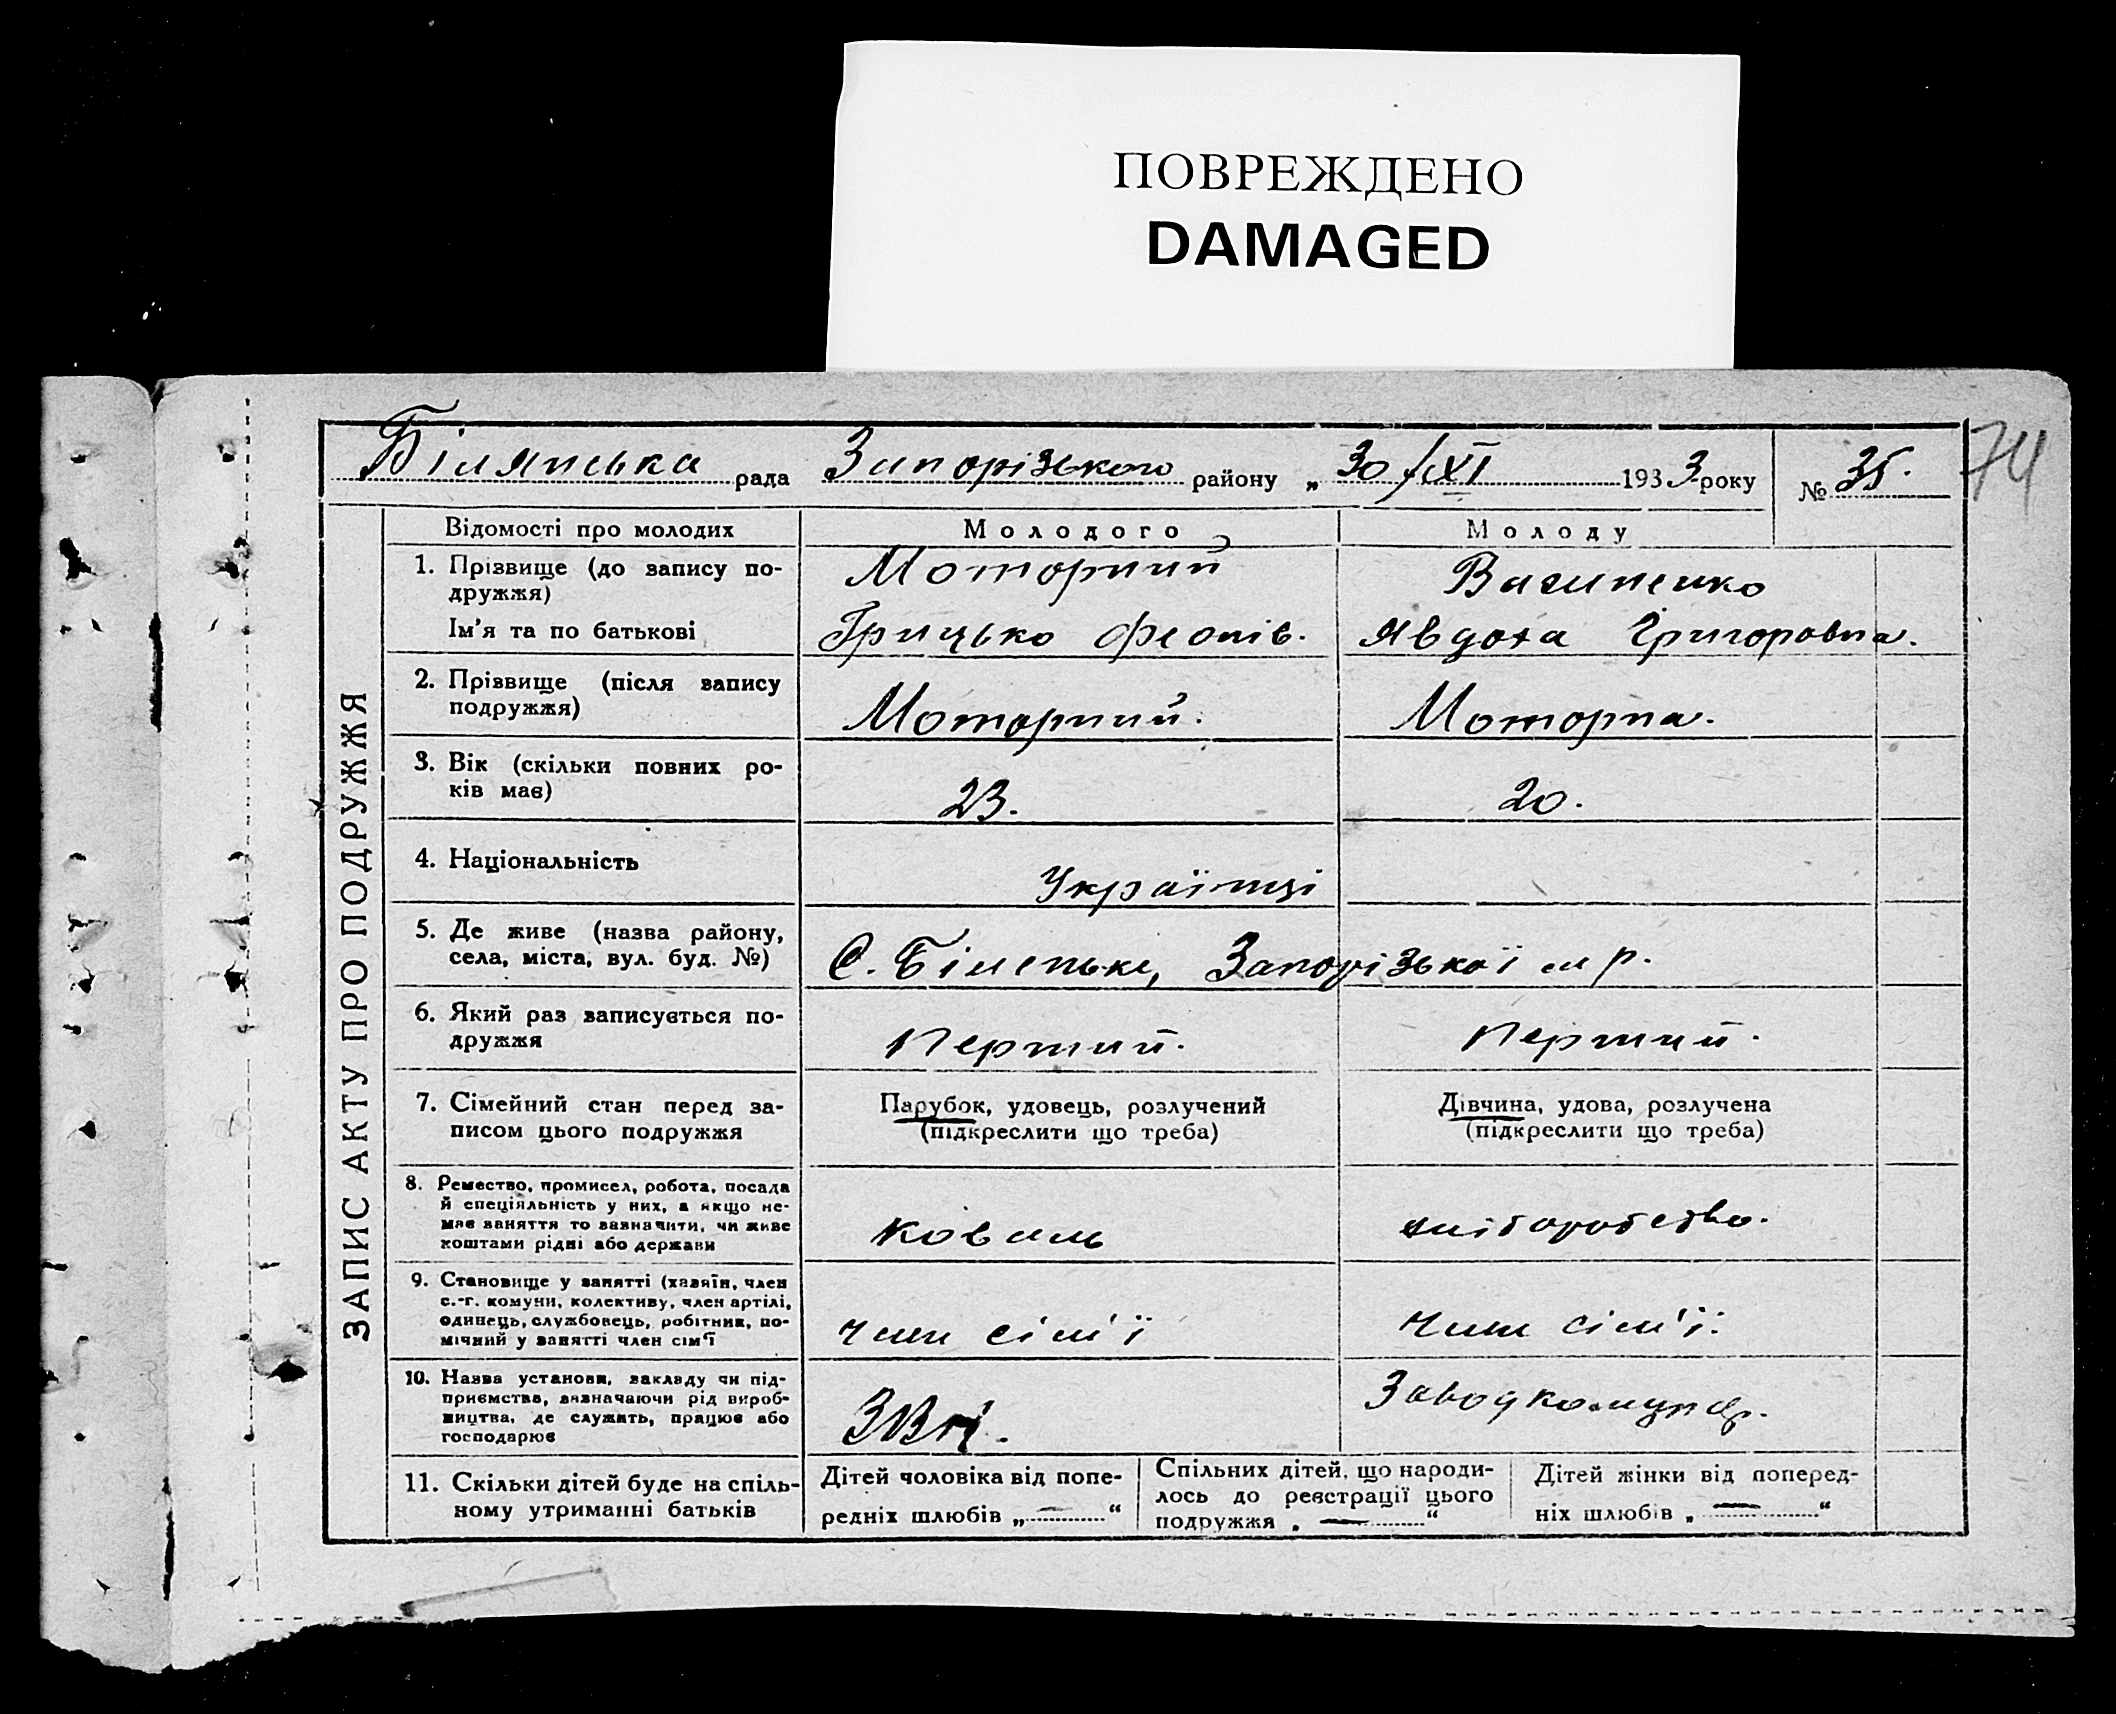 ПОВРЕЖДЕНО
DAMAGED
Білянська рада Запорізького району „ 30/XI 1933 року № 35. 74
ЗАПИС АКТУ ПРО ПОДРУЖЖЯ
Відомості про молодих Молодого Молоду
1. Прізвище (до запису по-
дружжя)
Моторний Василенко
Ім'я та по батькові Грицько Феопів. Явдоха Григоровна.
2. Прізвище (після запису
подружжя)
Моторний. Моторна.
3. Вік (скільки повних ро-
ків має)
23. 20.
4. Національність Українці
5. Де живе (назва району,
села, міста, вул. буд. №)
С. Біленьке, Запорізької м р.
6. Який раз записується по-
дружжя
Перший. Перший.
7. Сімейний стан перед за-
писом цього подружжя
Парубок, удовець, розлучений
(підкреслити що треба)
Дівчина, удова, розлучена
(підкреслити що треба)
8. Ремество, промисел, робота, посада
й спеціяльність у них, а якщо не-
має заняття то зазначити, чи живе
коштами рідні або держави
Коваль хліборобство.
9. Становище у занятті (хазяїн, член
с.-г. комуни, колективу, член артілі,
одинець, службовець, робітник, по-
мічний у занятті член сім'ї
член сім'ї член сім'ї.
10. Назва установи, закладу чи під-
приємства, зазначаючи рід вироб-
ництва, де служить, працює або
господарює
11. Скільки дітей буде на спіль-
ному утриманні батьків
Дітей чоловіка від попе-
редніх шлюбів „ — “
Спільних дітей, що народи-
лось до реєстрації цього
подружжя „ — “
Дітей жінки від поперед-
ніх шлюбів „ — “